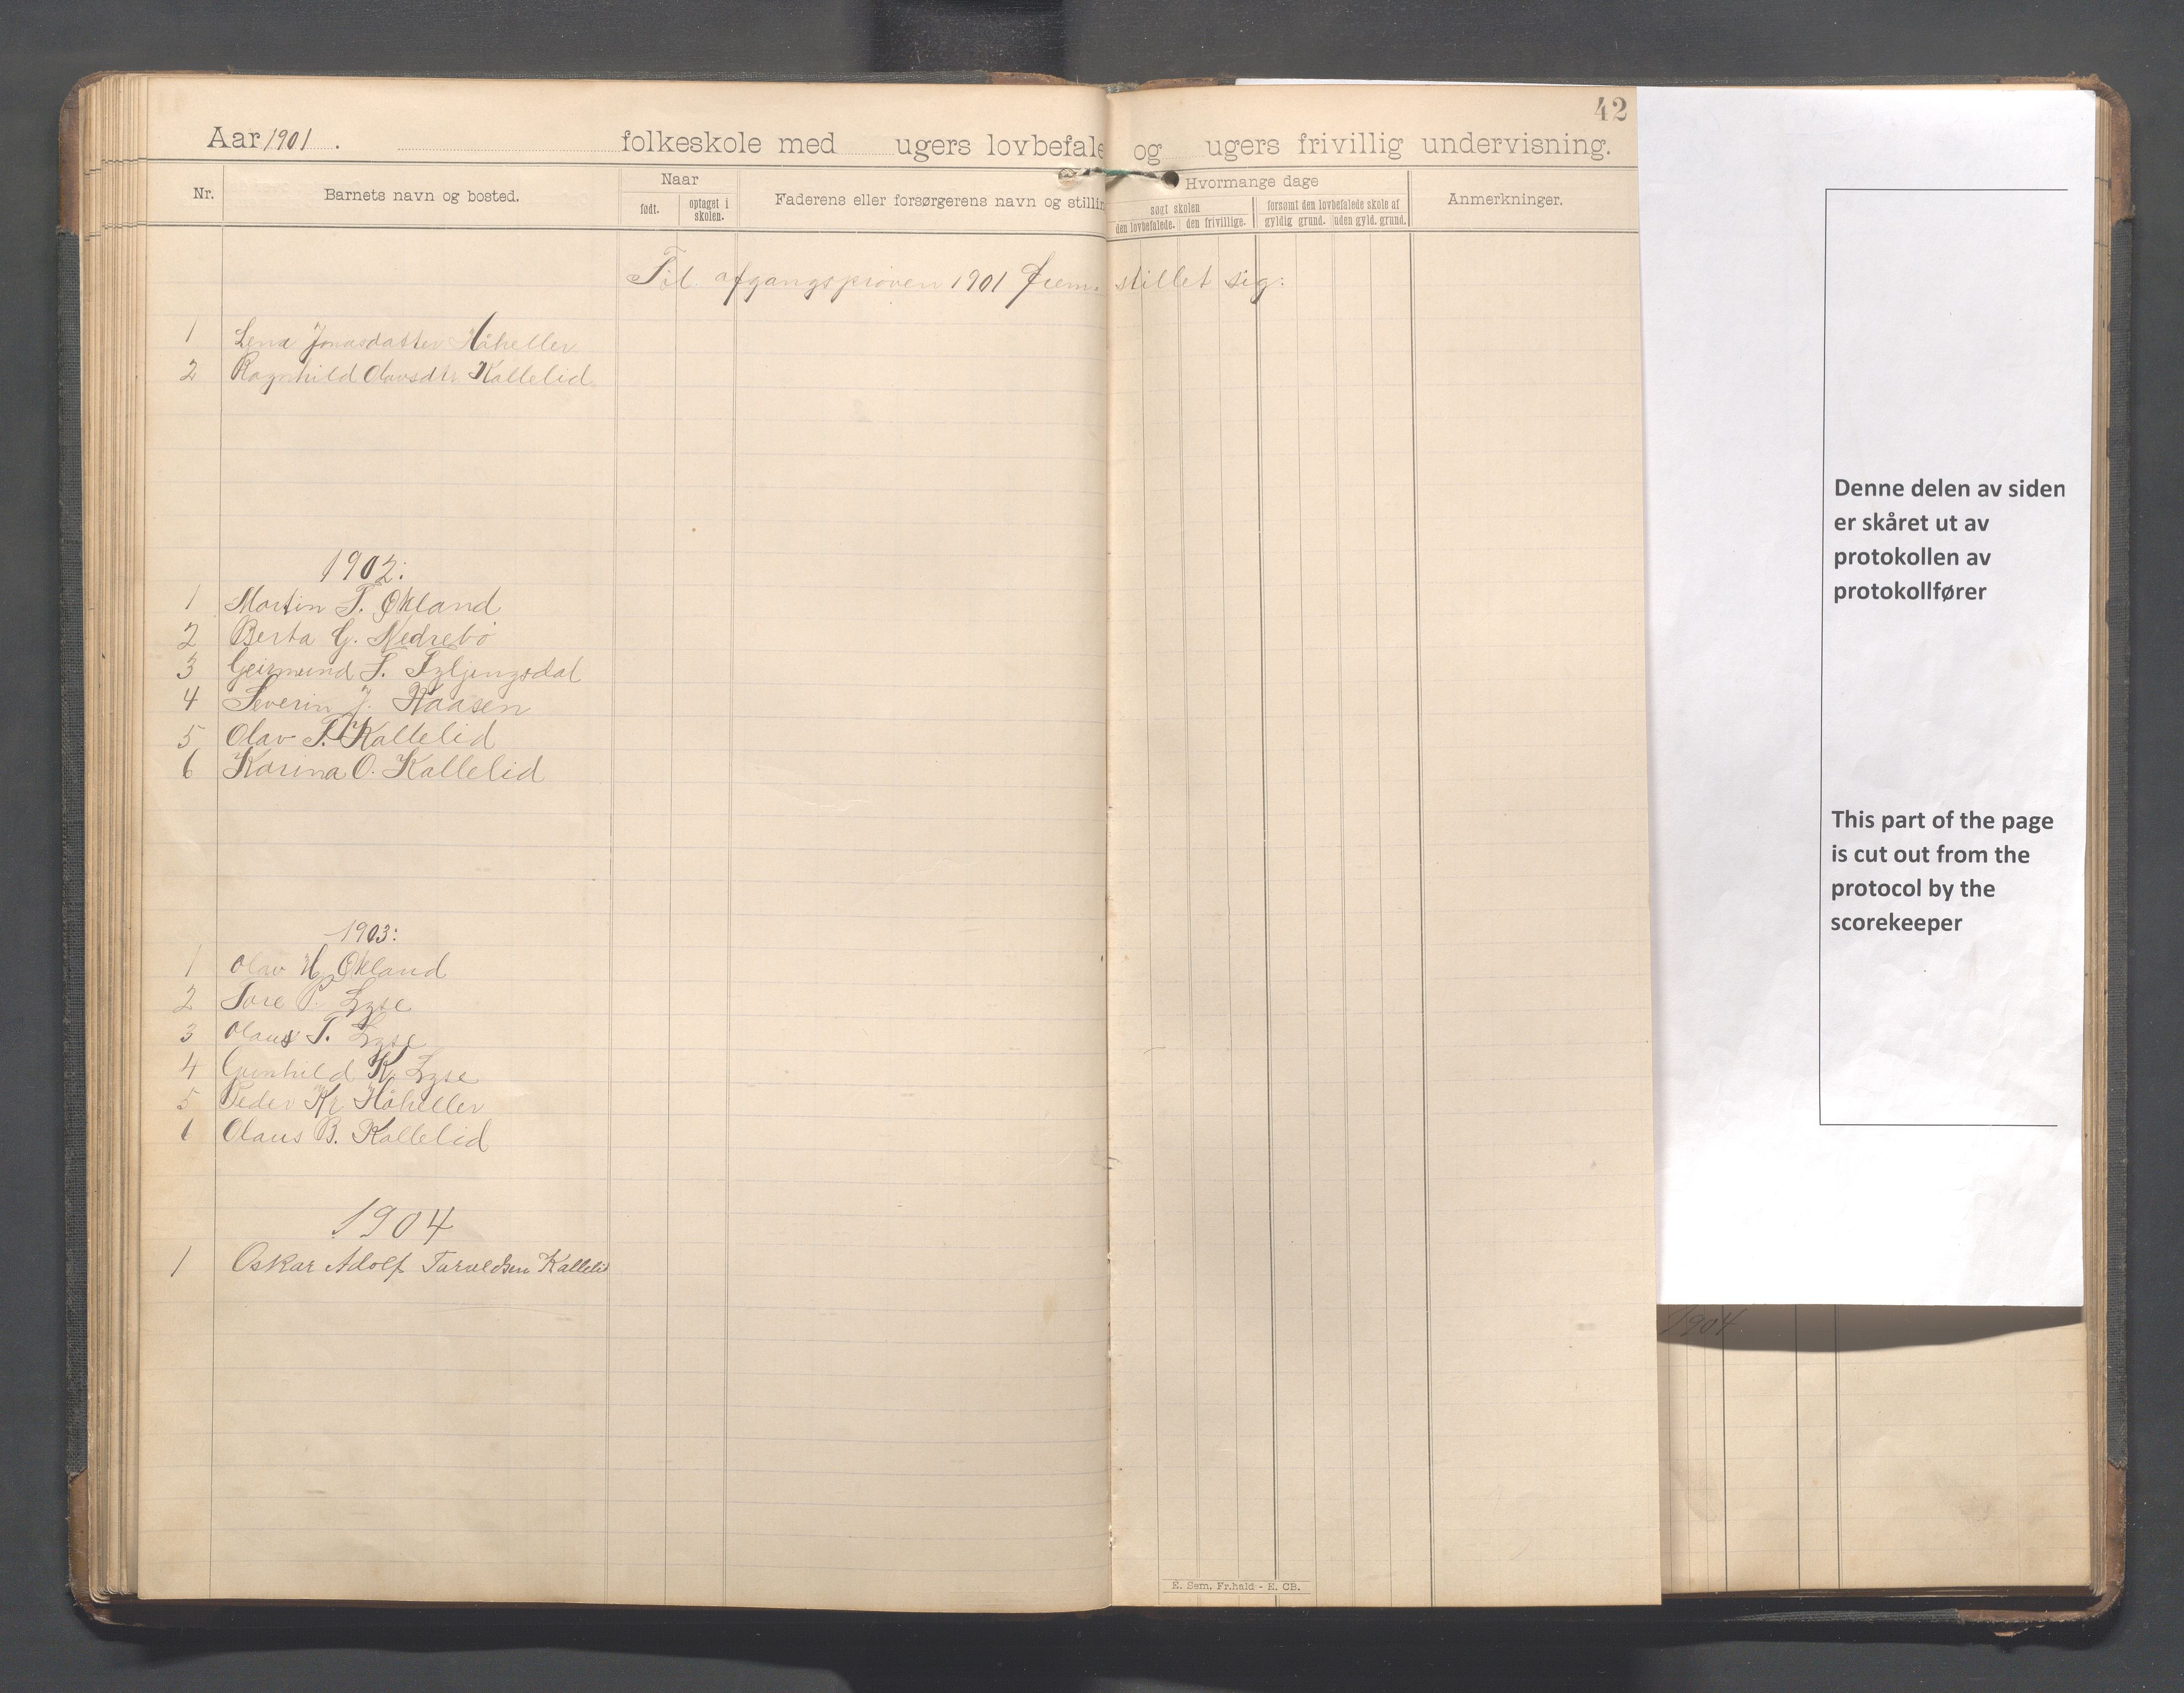 42
Aar 1901. folkeskole med ugers lovbefale og ugers frivillig undervisning.
Nr. Barnets navn og bosted. Naar Faderens eller forsørgerens navn og stillin Hvormange dage Anmerkninger.
født. optaget i skolen. søgt skolen forsømt den lovbefalede skole af
den lovbefalede. den frivillige. gyldig grund. uden gyld. grund.
Til afgangsprøven 1901 frem stillet sig:
1 Lena Jonasdatter Håheller
2 Ragnhild Olavsdtr. Kallelid
1902:
1 Martin T. Økland
2 Berta G. Nedrebø
3 Geirmund S. Tzljengsdal
4 Severin J. Kaasen
5 Olav T. Kallelid
6 Karina O. Kallelid
1903:
1 Olav H. Økland
2 Tore P. Lyse
3 Olaus T. Lyse
4 Gunhild K. Lyse
5 Peder Kr. Håheller
6 Olaus B. Kallelid
1904
1 Oskar Adolf Taraldsen Kallelid
E. Sem, Fr.hald - E. CB.
Denne delen av siden
er skåret ut av
protokollen av
protokollfører
This part of the page
is cut out from the
protocol by the
scorekeeper
1904